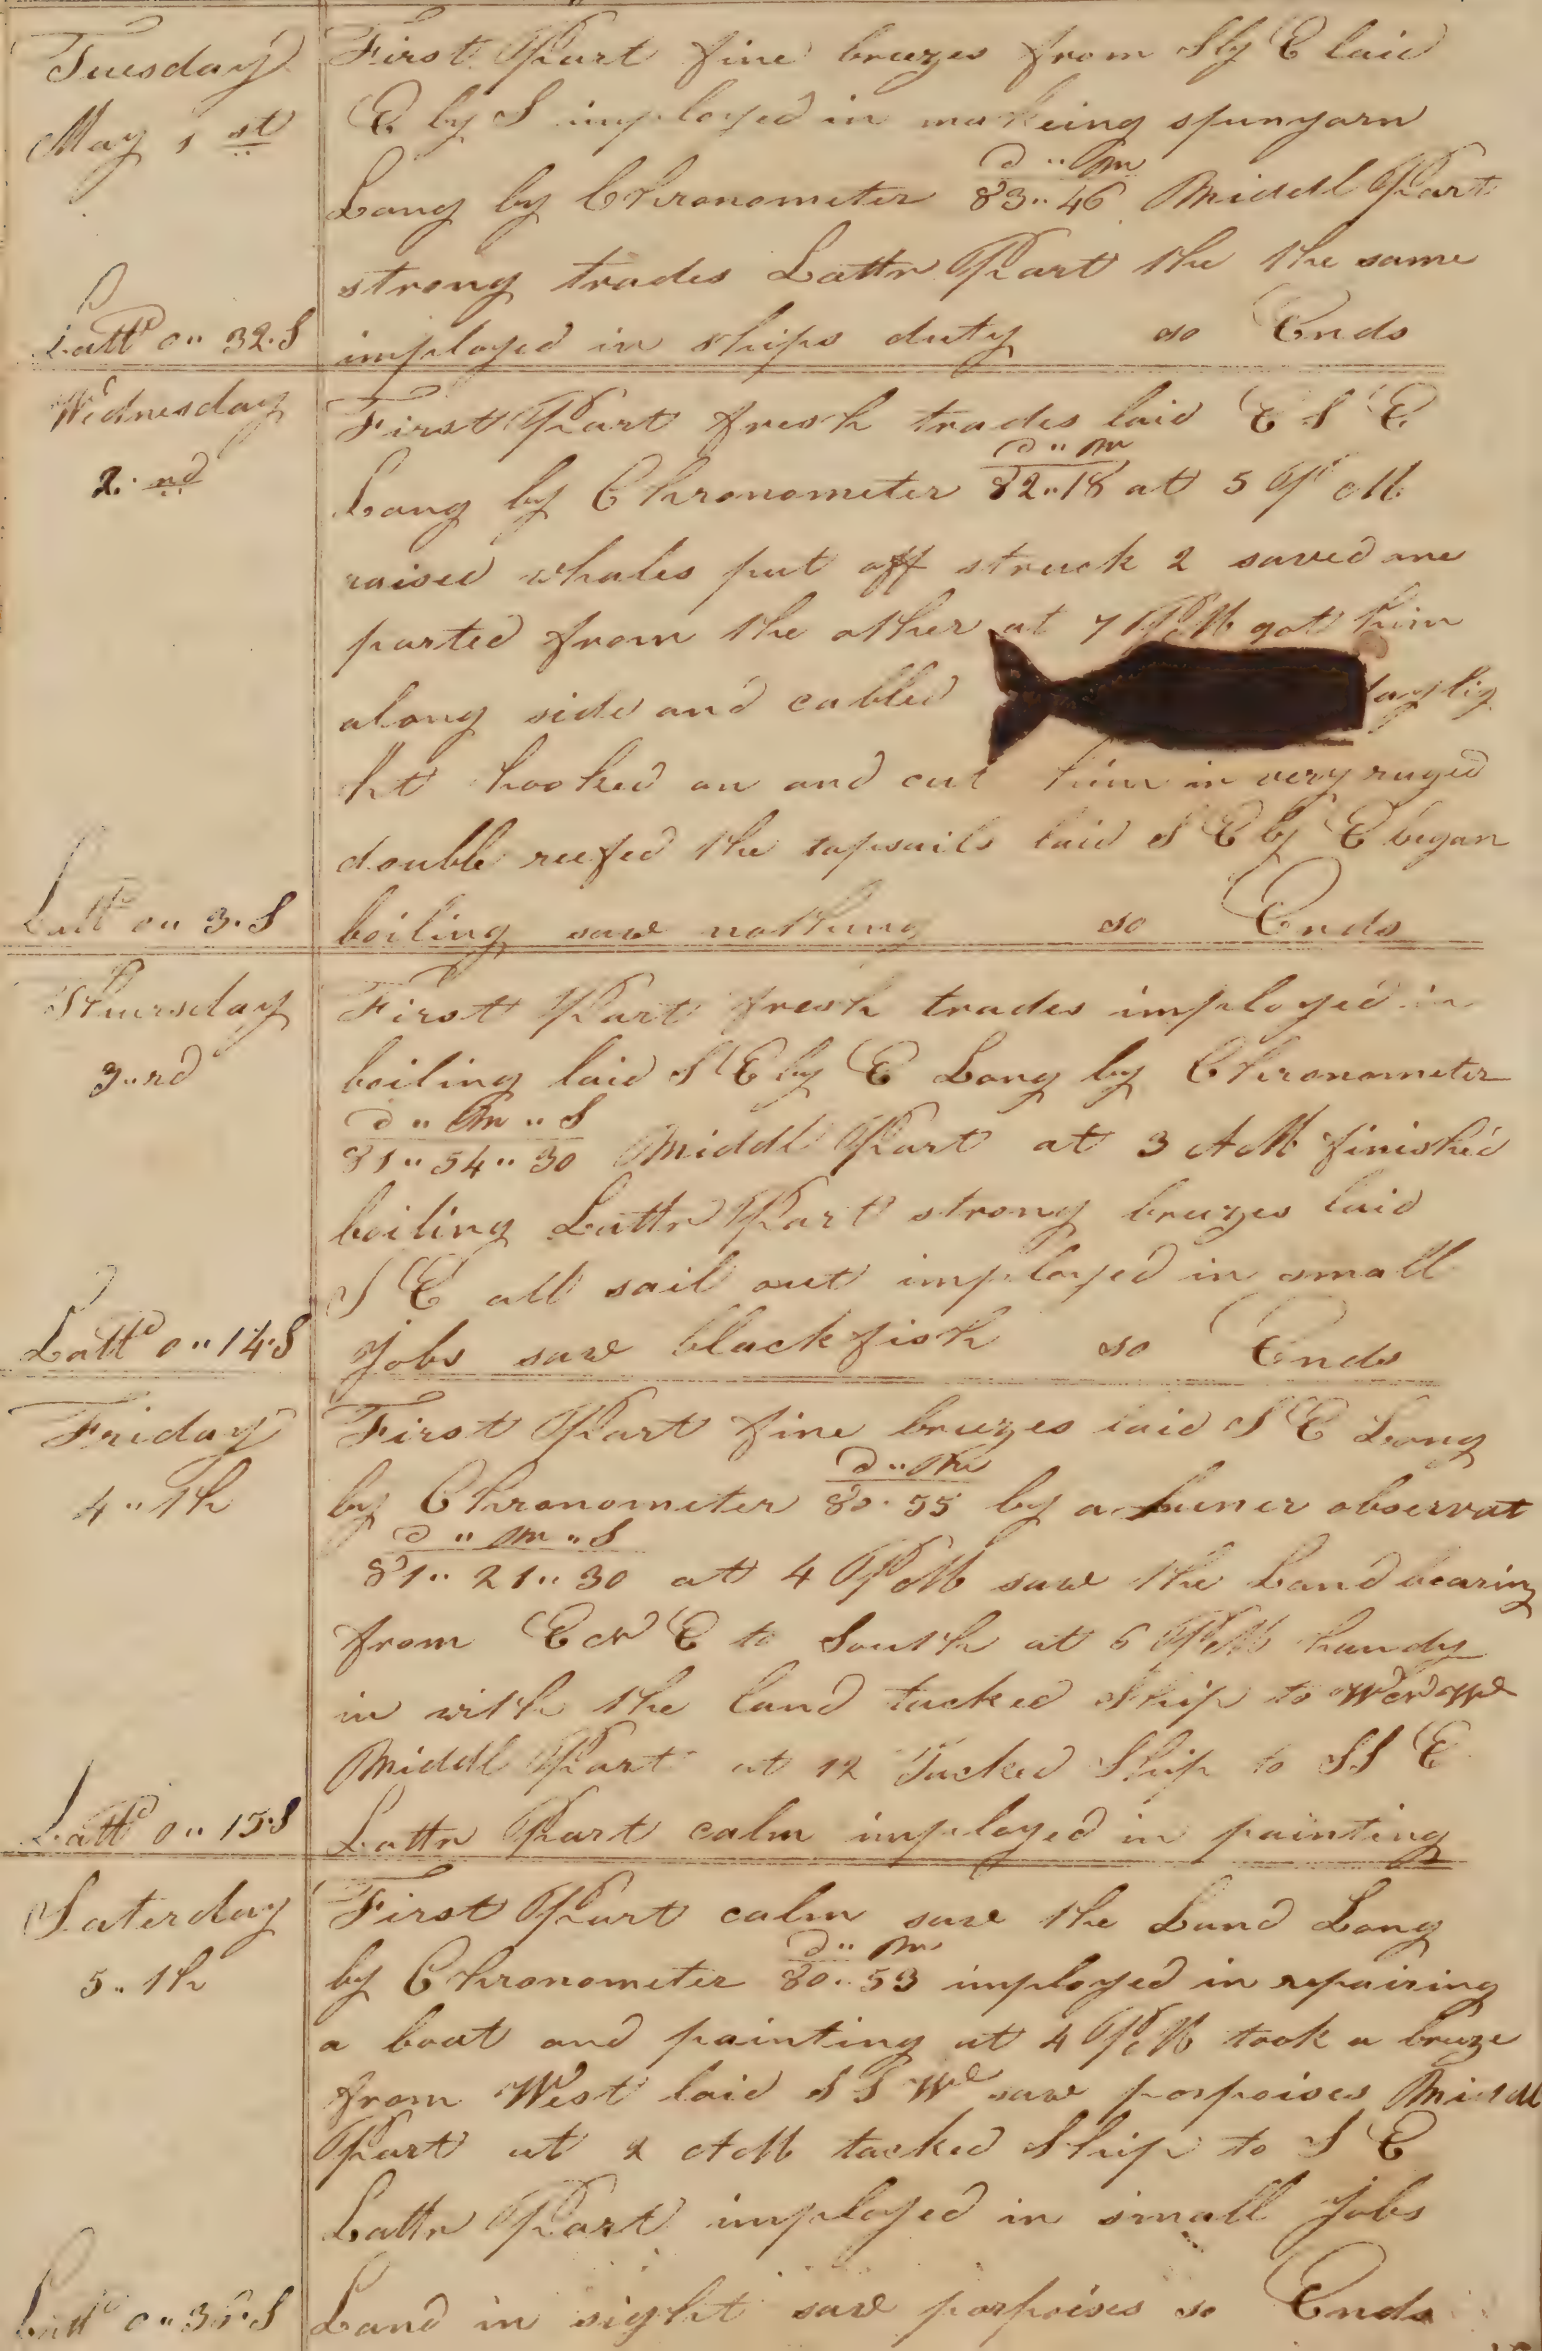 Tuesday
May 1 st
Lattd 0,, 32.S
First Part fine breezes from S by E laid
E by S imployed in makeing spunyarn
d ,, m
Long by Chronometer 83,, 46 Middl Part
strong trades Lattr Part the the same
imployed in ships duty so Ends
Wednesday
2. nd
Lattd 0,, 3.S
First Part fresh trades laid E S E
d ,, m
Long by Chronometer 82,,18 at 5 P M
raised whales put off struck 2 saved one
parted from the other at 7 P M got him
along side and cabled daylig
ht hooked on and cut him in very ruged
double reefed the topsails laid S E by E began
boiling saw nothing so Ends
Thursday
3,,rd
Lattd 0,, 14.S
First Part fresh trades imployed in
boiling laid S E by E Long by Chronometer
d ,, m ,, S
81,, 54,, 30 Middl Part at 3 A M finished
boiling Lattr Part strong breezes laid
S E all sail out imployed in small
Jobs saw blackfish so Ends
Friday
4,, th
Lattd 0,, 15.S
First Part fine breezes laid S E Long
d ,, m
by Chronometer 80. 55 by a Luner observat
d ,, m ,, S
81,, 21,, 30 at 4 P M saw the Land bearing
from E N E to South at 6 P M handy
in with the land tacked Ship to W N W
Middl Part at 12 Tacked Ship to S S E
Lattr Part calm imployed in painting
Saterday
5,, th
Lattd 0,, 36.S
First Part calm saw the Land Long
d ,, m
by Chronometer 80,, 53 imployed in repairing
a boat and painting at 4 P M took a breze
from West laid S S W saw porpoises Middl
Part at 2 A M tacked Ship to S E
Lattr Part imployed in small Jobs
Land in sight saw porpoises so Ends